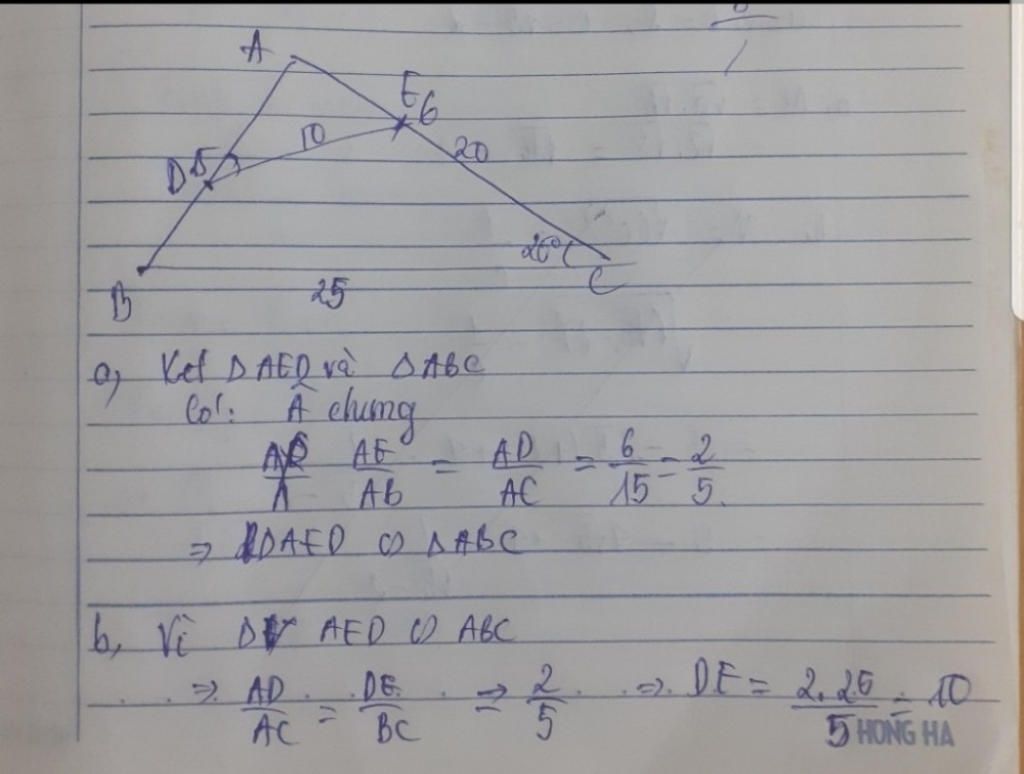 A
E 6
10
20
D 5
20° C
B
25
a, Xét ΔAED và ΔABC
Có: Â chung
AE/AB = AD/AC = 6/15 = 2/5
⇒ ΔAED ∽ ΔABC
b, Vì Δ AED ∽ ABC
⇒ AD/AC = DE/BC = 2/5 ⇒ DE = 2.25/5 = 10
HONG HA